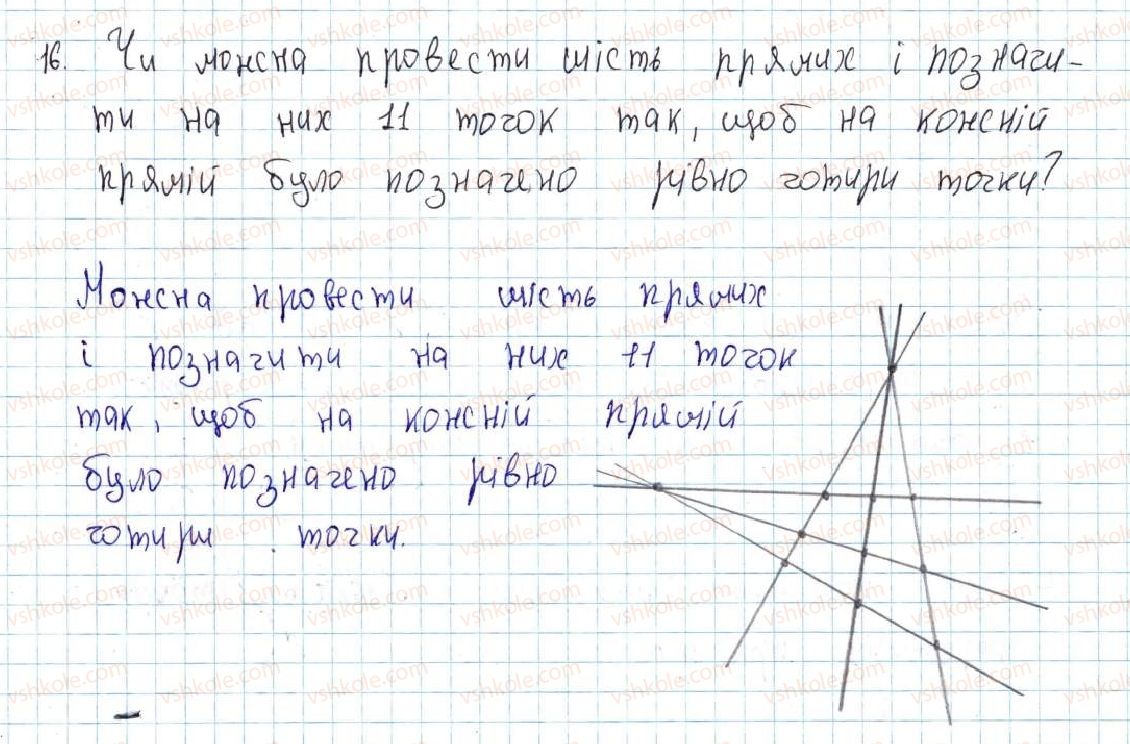 16. Чи можна провести шість прямих і позначи-
ти на них 11 точок так, щоб на кожній
прямій було позначено рівно чотири точки?
Можна провести шість прямих
і позначити на них 11 точок
так, щоб на кожній прямій
було позначено рівно
чотири точки.